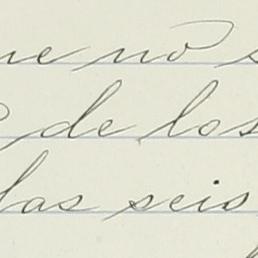 no
de los
las seis